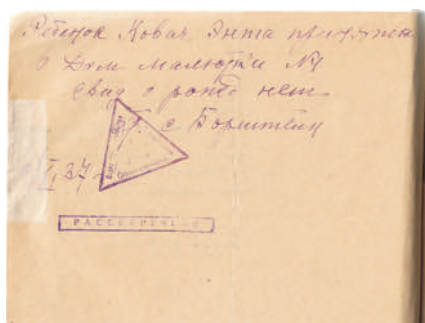 Ребенок Ковач Энта принята
в Дом малютки №1
Свид о рожд нет
с Борштейн
37
РАССЕКРЕЧЕНО